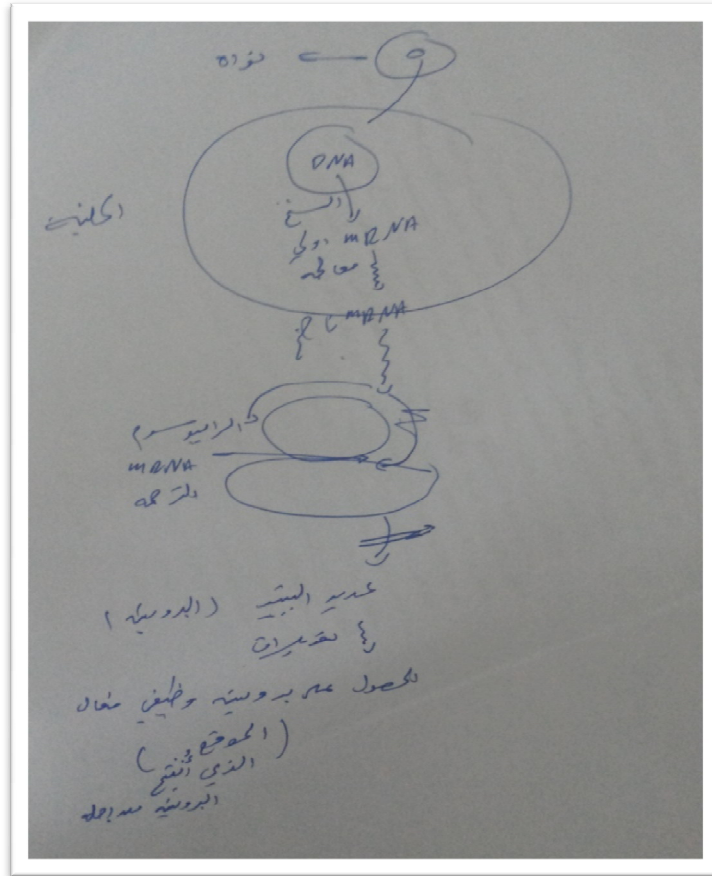 نواة
DNA
الخلية
النسخ
mRNA اولي
معالجه
mRNA ناضج
الرايبوسوم
mRNA
الترجمه
عديد الببتيد (البروتين)
تعديلات
للحصول على بروتين وظيفي فعال
(الموقع
الذي أُنتج
البروتين من اجله